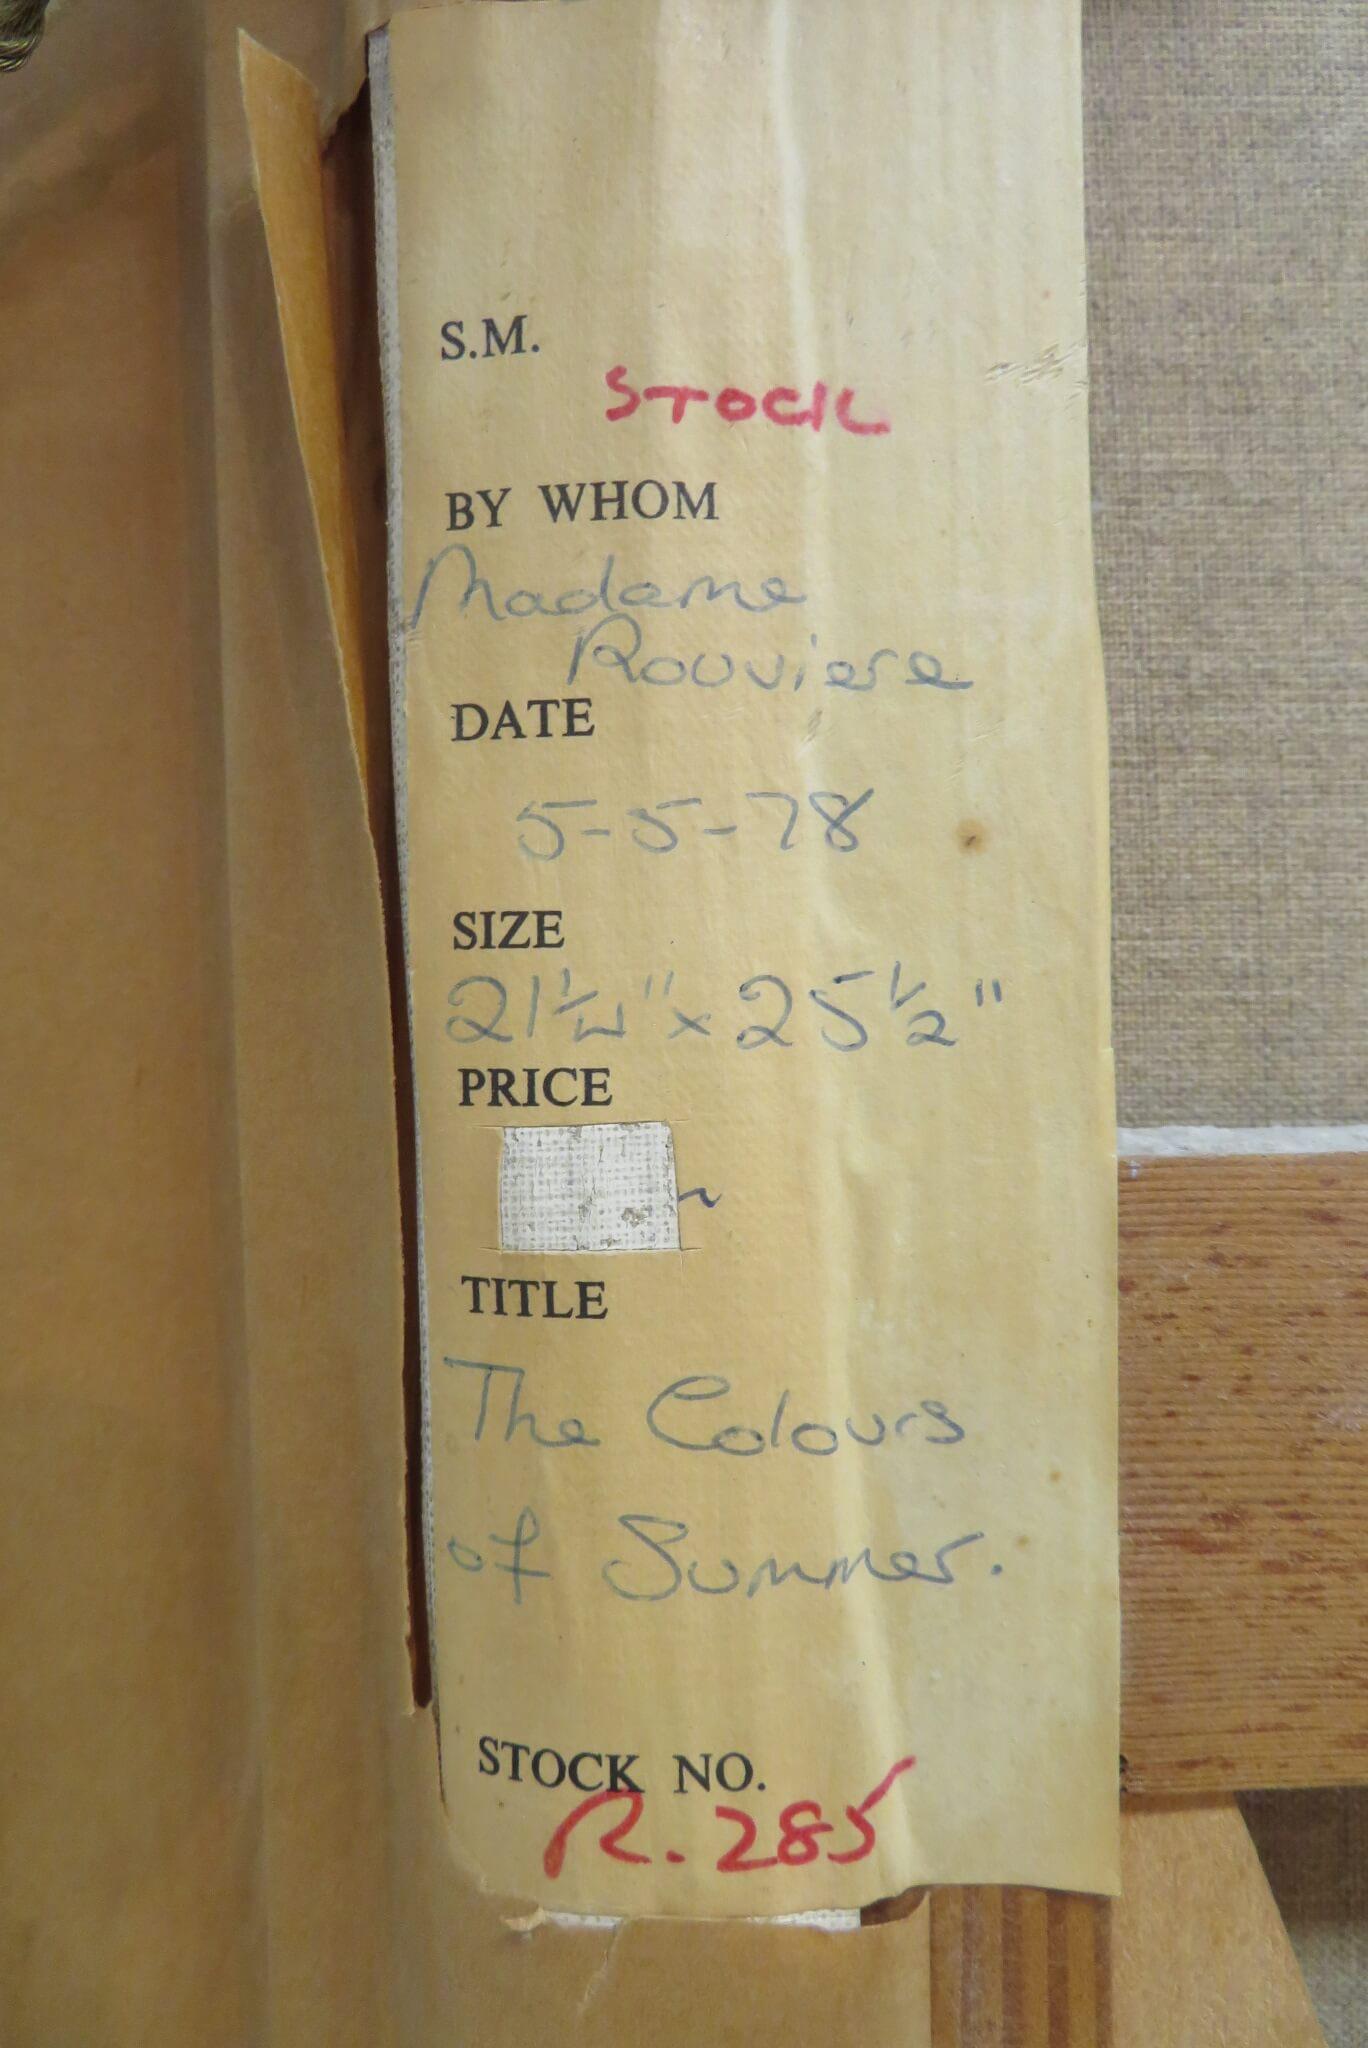 S.M.
STOCK
BY WHOM
Madame
Rouviere
DATE
5-5-78
SIZE
21 1/4" x 25 1/2"
PRICE
TITLE
The Colours
of Summer.
STOCK NO.
R. 285